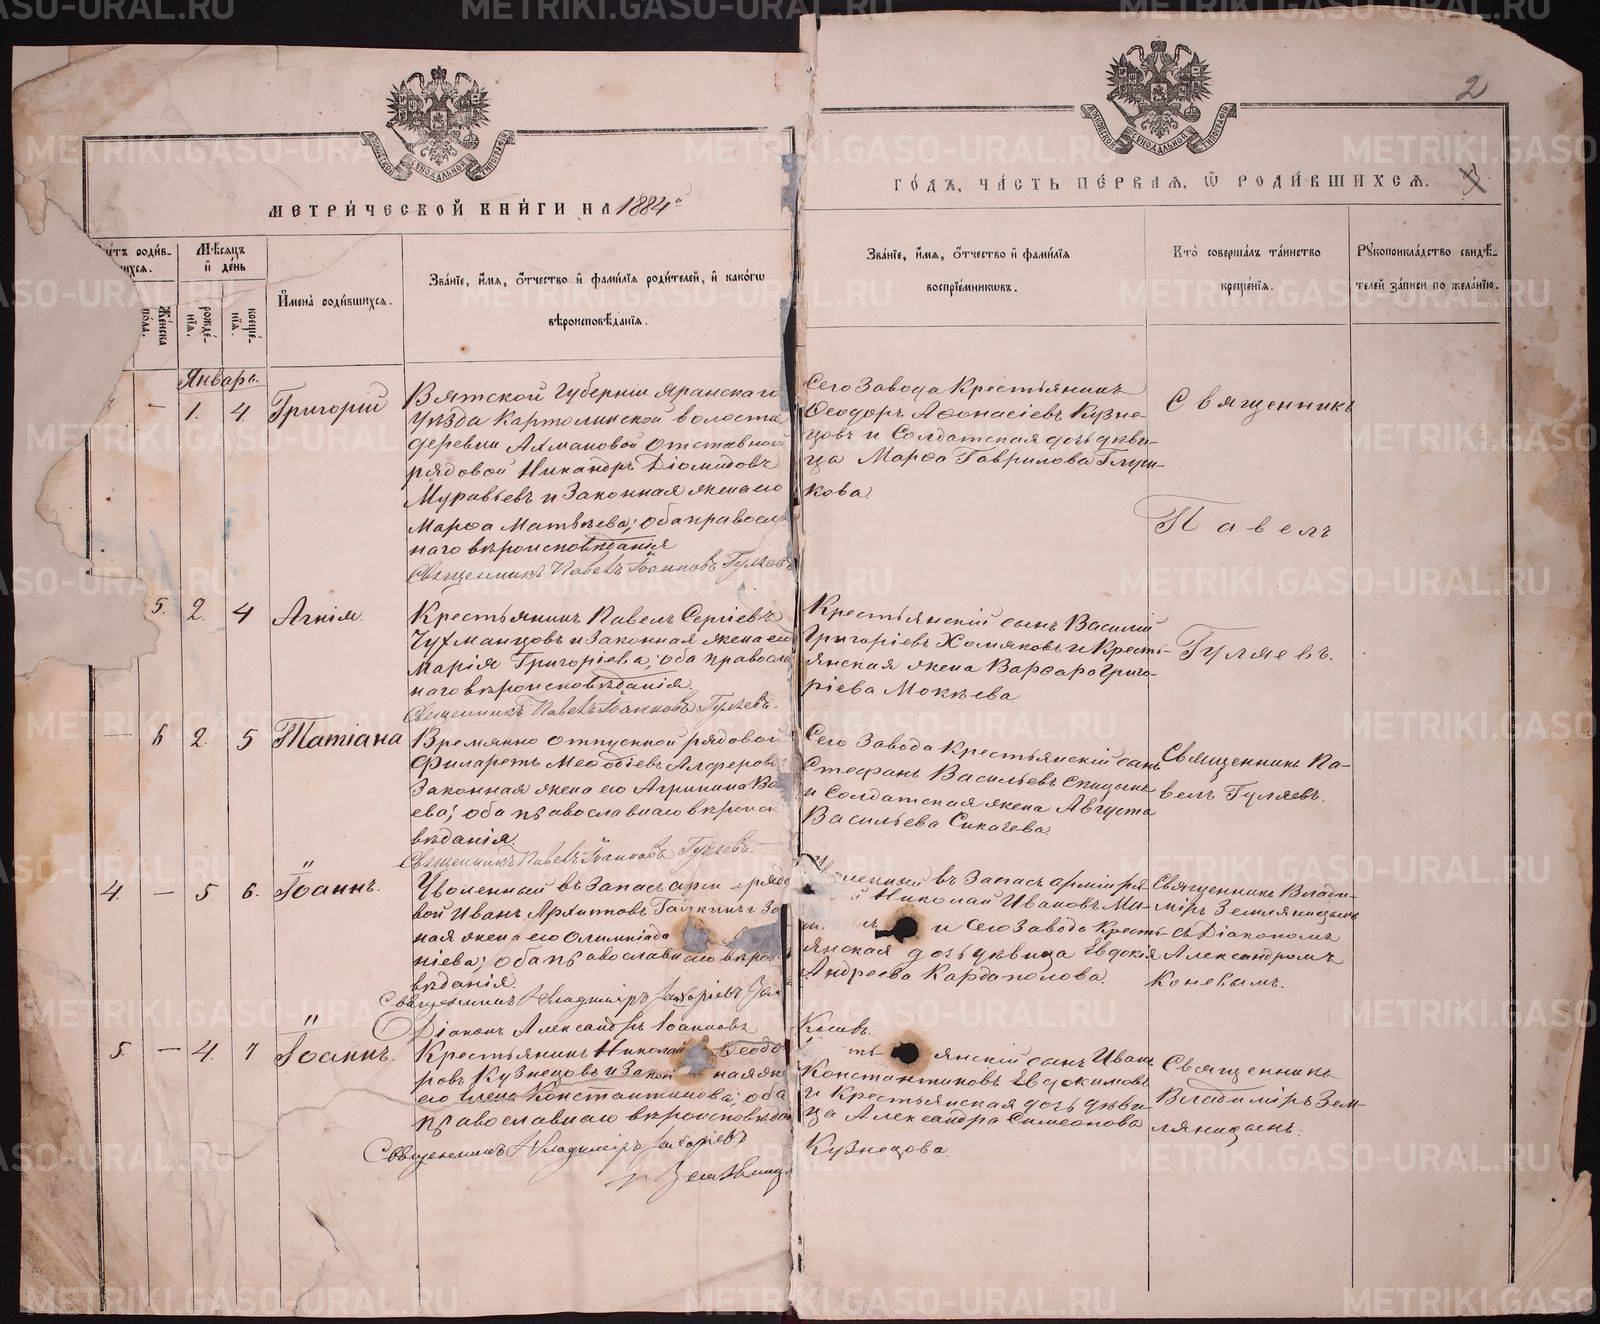 2
МЕТРИ́ЧЕСКОЙ КНИ́ГИ НА 1884й
ГО́ДЪ, ЧА́СТЬ ПЕ́РВАЯ, Ѡ РОДИ́ВШИХСЯ.
роди́в-
шихся.
Же́нска
по́ла.
Мѣ́сяцъ
и де́нь
рожде́-
нїя.
креще́-
нїя.
И҆мена̀ роди́вшихся.
Зва́нїе, и҆́мя, ѻ҆́тчество и҆ фами́лїя роди́телей, и҆ како́гѡ
вѣроисповѣ́данїя.
Зва́нїе, и҆́мя, ѻ҆́тчество и҆ фами́лїя
воспрїе́мникѡвъ.
Кто̀ соверша́лъ та́инство
креще́нїя.
Рꙋкоприкла́дство свидѣ́-
телей за́писи по жела́нїю.
Январь.
— 1. 4. Григорій
Вятской Губерніи Яранскаго
Уѣзда Картолинской волости
деревни Ахмановой отставной
рядовой Никандръ Діомидовъ
Муравьевъ и Законная жена его
Марѳа Матвѣева; оба правосла
наго вѣроисповѣданія
Священникъ Павелъ Іоанновъ Гуляевъ
Сего Завода Крестьянинъ
Ѳеодоръ Аѳонасіевъ Кузне-
цовъ и Солдатская дочь дѣви-
ца Марѳа Гаврилова Глуш-
кова.
Священникъ
Павелъ
Гуляевъ.
5. 2. 4 Агнія.
Крестьянинъ Павелъ Сергіевъ
Чухманцовъ и Законная жена его
Марія Григоріева; оба правосла
наго вѣроисповѣданія.
Священникъ Павелъ Іоанновъ Гуляевъ.
Крестьянскій сынъ Василій
Григоріевъ Хомяковъ и Кресть-
янская жена Варвара Григо-
ріева Мокѣева
— 6 2 5 Татіана
Времянно отпускной рядовой
Филаретъ Меѳодіевъ Алферовъ
Законная жена его Агрипина Ва
ева; оба православнаго вѣроисп
вѣданія.
Священникъ Павелъ Іоанновъ Гуляевъ.
Сего Завода Крестьянскій сынъ
Стефанъ Васильевъ Спицынъ
и Солдатская жена Августа
Васильева Сикачева
Священникъ Па-
велъ Гуляевъ.
4. — 5 6. Іоаннъ.
Уволенный въ Запасъ арміи рядо
вой Иванъ Архиповъ и За
ная жена его Олимпіада
ніева; оба православнаго вѣрои
вѣданія.
Священникъ Владиміръ Захаріевъ Зем
Діаконъ Александръ Іоанновъ
Коневъ.
въ Запасъ арміи ря-
й Николай Ивановъ Ми-
и Сего Завода Кресть-
янская дочь дѣвица Евдокія
Андреева Кардаполова.
Священникъ Влади-
міръ Земляницынъ
съ Діакономъ
Александромъ
Коневымъ.
5. — 4. 7 Іоаннъ.
Крестьянинъ Николай Ѳеодо
ровъ Кузнецовъ и Закон ная же
его Елена Константинова; оба
православнаго вѣроисповѣдан
Священникъ Владиміръ Захаріевъ
Земляниц
янскій сынъ Иванъ
Константиновъ Евдокимовъ
и Крестьянская дочь дѣви-
ца Александра Симеонова
Кузнецова.
Священникъ
Владиміръ Зем-
ляницынъ.
METRIKI.GASO-URAL.RU